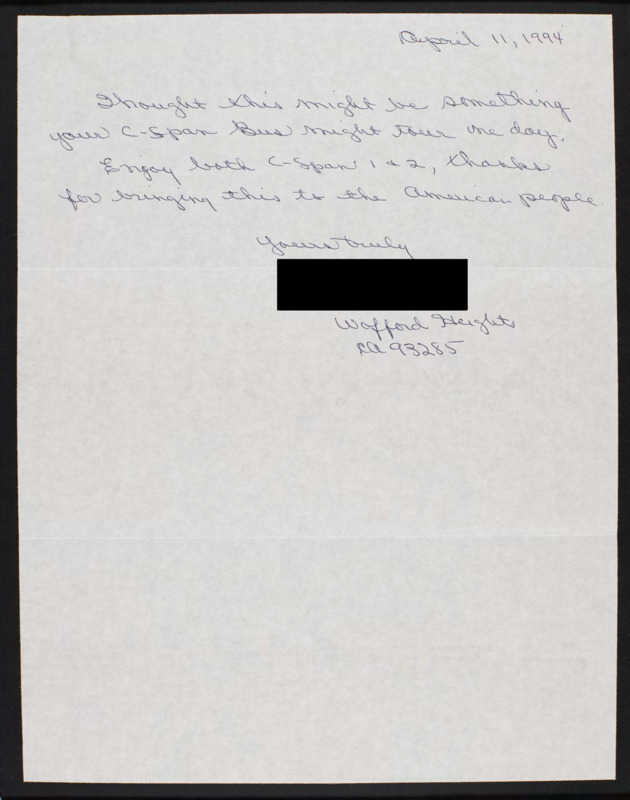 April 11, 1994
Thought this might be something
your C-Span Bus might tour one day.
Enjoy both C-Span 1 & 2, thanks
for bringing this to the American people.
Yours truly
Wofford Heights
CA 93285